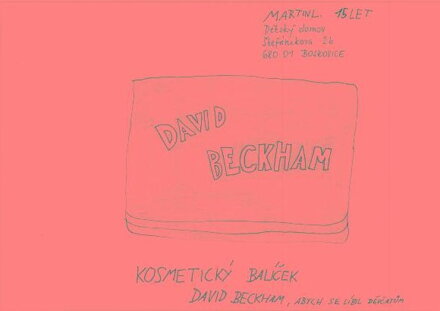 MARTIN L. 15 LET
Dětský domov
Štefánikova 2b
680 01 BOSKOVICE
DAVID
BECKHAM
KOSMETICKÝ BALÍČEK
DAVID BECKHAM, ABYCH SE LÍBIL DĚVČATŮM